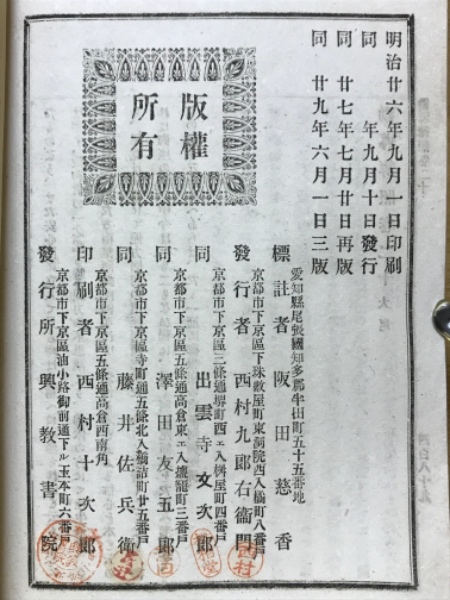 明治廿六年九月一日印刷
同　年九月十日發行
同　廿七年七月廿日再版
同　廿九年六月一日三版
版權
所有
愛知縣尾張國知多郡半田町五十五番地
標註者　阪田慈香
京都市下京區下珠數屋町東洞院西入橘町八番戸
發行者　西村九郎右衞門
京都市下京區三條通堺町西ェ入桝屋町四番戸
同　出雲寺文次郎
京都市下京區五條通高倉東ェ入攩籠町三番戸
同　澤田友五郎
京都市下京區寺町通五條北入橋詰町廿五番戸
同　藤井佐兵衞
京都市下京區五條通高倉西南角
印刷者　西村十次郎
京都市下京區油小路御前通下ル玉本町六番戸
發行所　興教書院